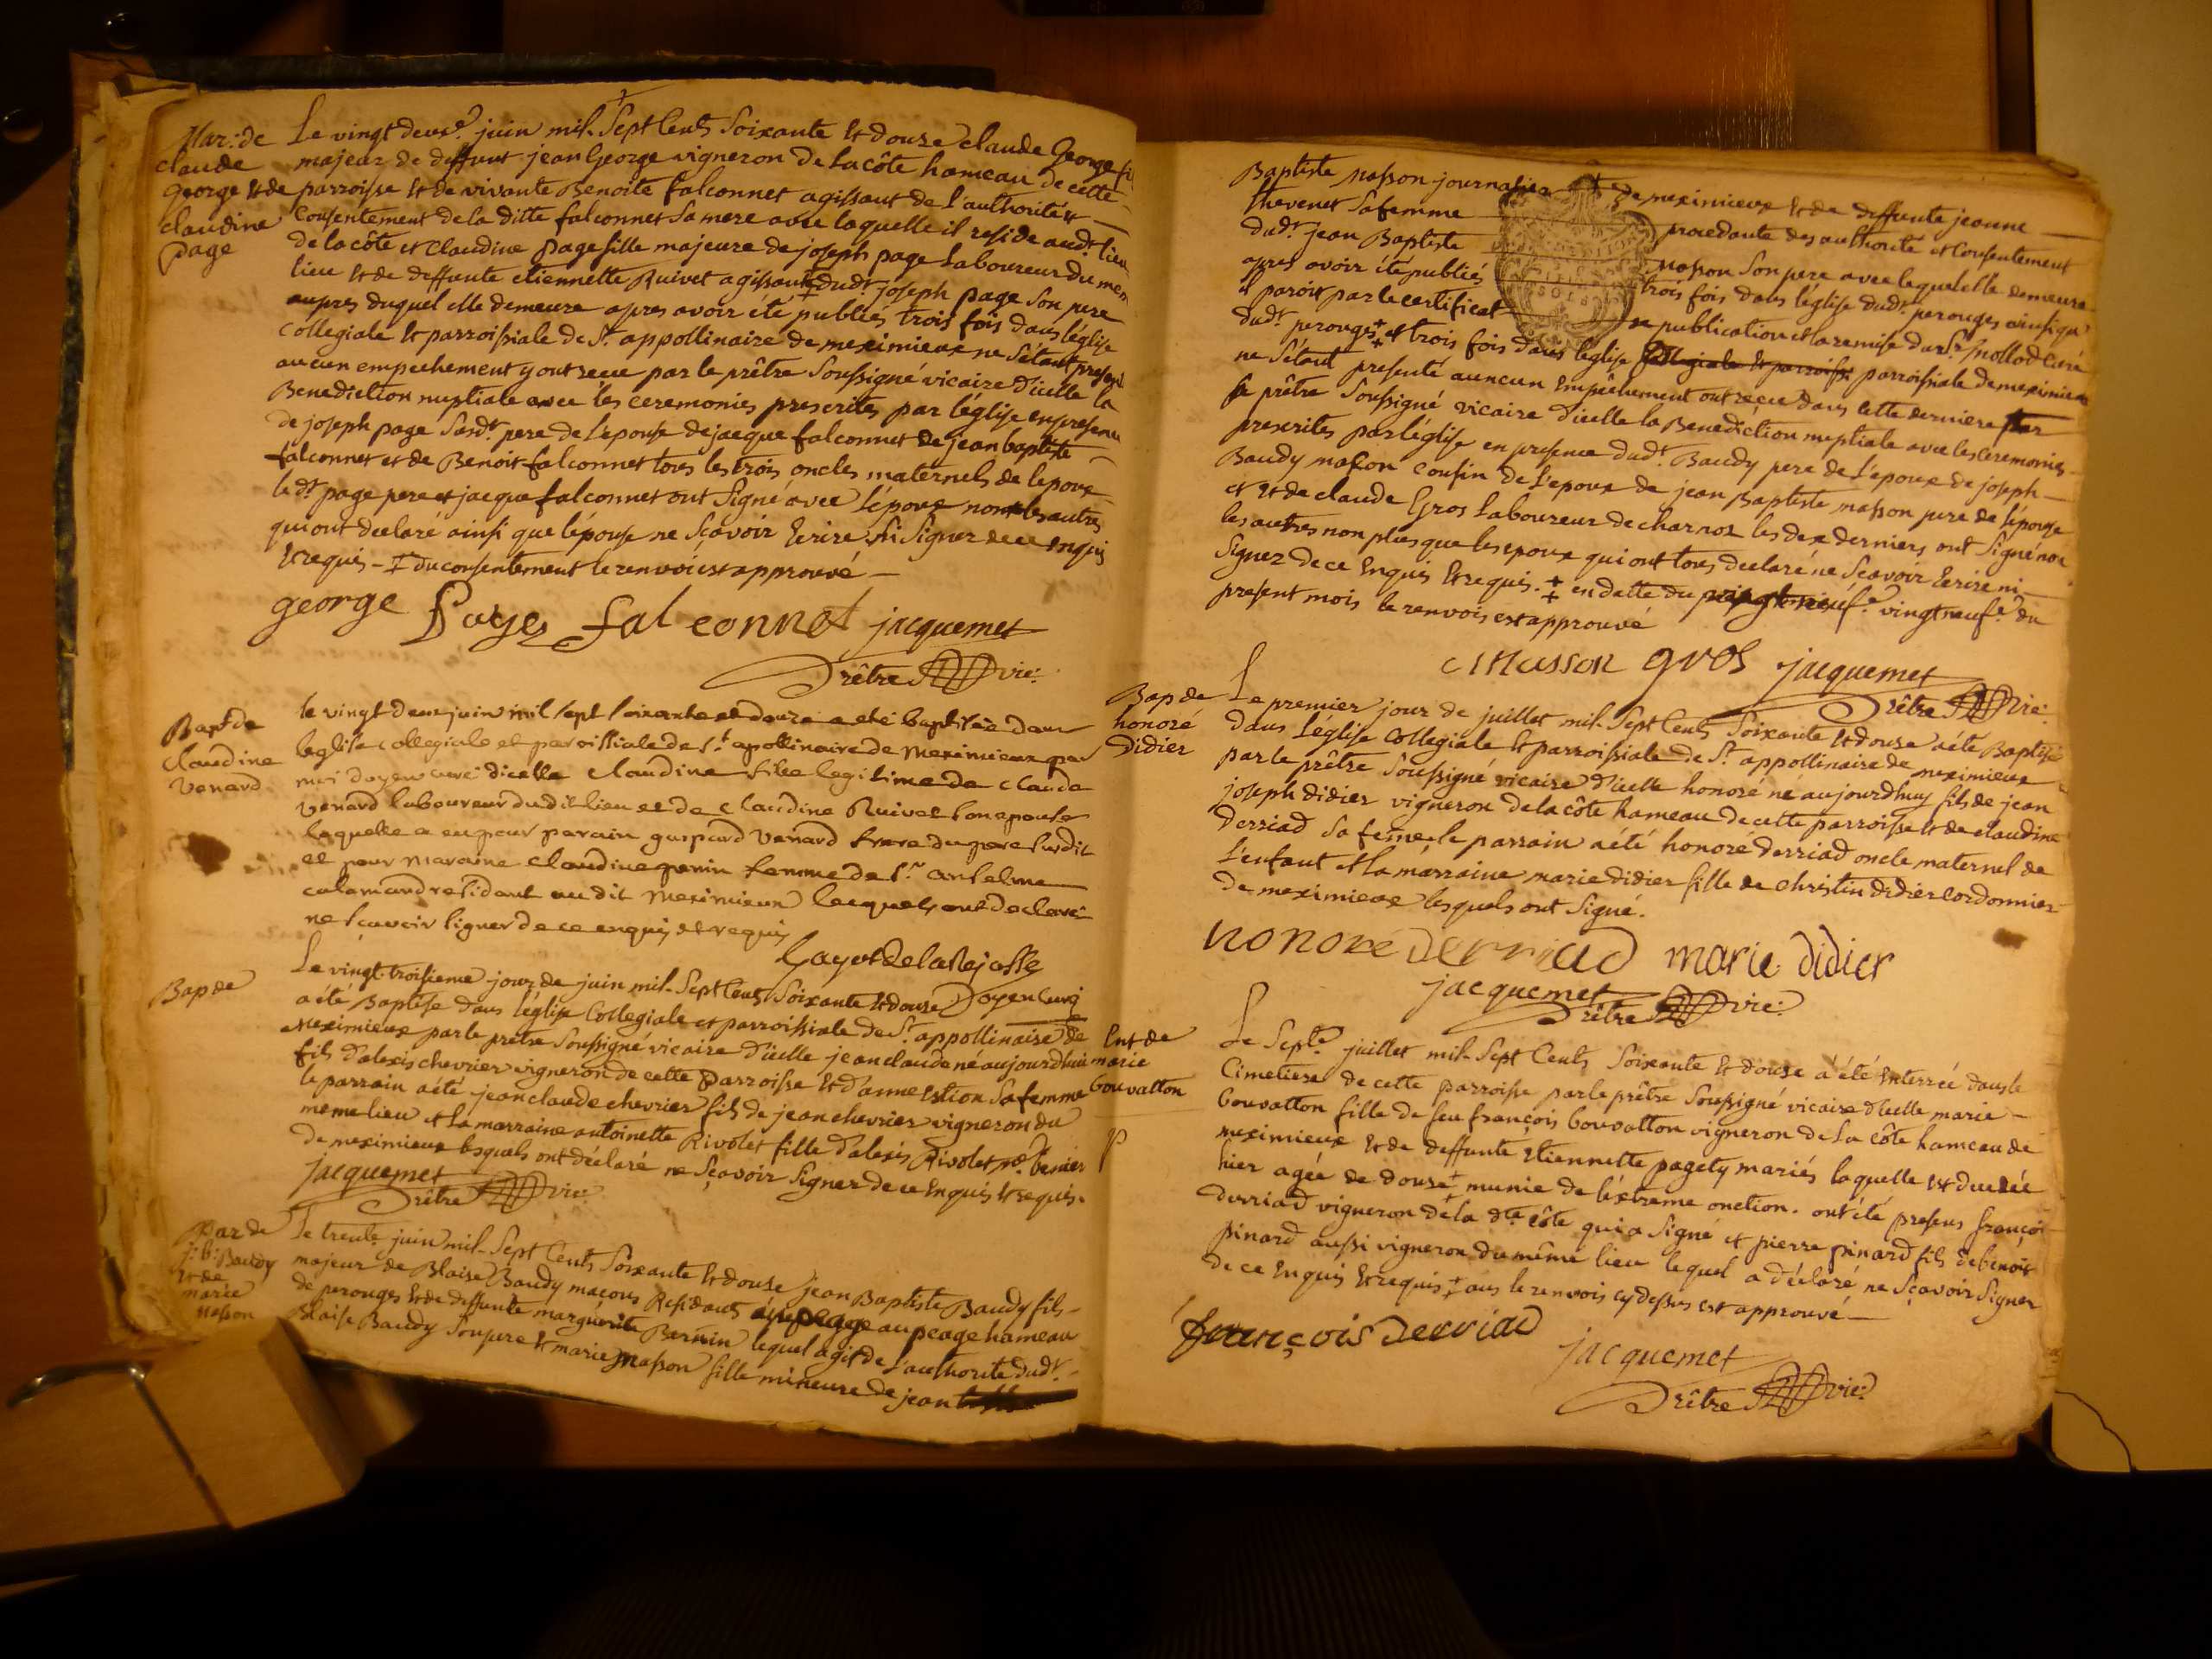 Mar: de
claude
george et de
claudine
page
Le vingt deuxe. juin mil Sept Cents Soixante et douse claude George fi
majeur de deffunt jean George vigneron de la côte hameau de cette
parroisse et de vivante Benoite falconnet agissant de l'authorité et
Consentement de la ditte falconnet Sa mere avec laquelle il reside aud.t lieu
de la côte et Claudine page fille majeure de joseph page Laboureur du mem
lieu et de deffunte etiennette Ruivet agissant ‡ dud.t joseph page Son pere
aupres duquel elle demeure apres avoir été publiés trois fois dans l'église
Collegiale et parroissiale de St. appollinaire de meximieux ne S'étant presenté
aucun empechement y ont recue par le prêtre Soussigné vicaire d'icelle la
Benediction nuptiale avec les ceremonies prescrites par l'église en presence
de joseph page Susd.t pere de l'epouse de jacque falconnet de jean baptiste
falconnet et de Benoit falconnet tous les trois oncles maternels de l'epoux
led.t page pere et jacque falconnet ont Signé avec l'époux non les autres
qui ont declaré ainsi que l'épouse ne Sçavoir Ecrire ni Signer de ce enquis
et requis - ‡ du consentement le renvoi est approuvé —
george page falconnet jacquemet
Prêtre vic:
Bapt de
Claudine
Venard
le vingt deux juin mil sept soixante et douze a eté baptisée dans
leglise collegiale et paroissiale de s.t apollinaire de Meximieux par
moi doyen curé dicelle claudine fille legitime de claude
venard laboureur dudit lieu et de claudine Ruivet son epouse
laquelle a eu pour parain gaspard venard frere du pere susdit
et pour maraine claudine perrin femme de s.r anselme
calamard residant au dit Meximieux lesquels ont declaré
ne scavoir signer de ce enquis et requis
Gayot de la Rejasse
Doyen Curé
Bap de
Le vingt-troisieme jour de juin mil-Sept Cents Soixante et douse
a été Baptise dans l'église Collegiale et parroissiale de St. appollinaire de
Meximieux par le prêtre Soussigné vicaire d'icelle jean claude né aujourd'hui
fils d'alexis chevrier vigneron de cette parroisse et d'anne estion Sa femme
le parrain a été jean claude chevrier fils de jean chevrier vigneron du
meme lieu et la marraine antoinette Rivolet fille d'alexis Rivolet
de meximieux lesquels ont déclaré ne Sçavoir Signer de ce Enquis et requis.
jacquemet
Prêtre vic:
Mar de
j: b: Baudy
et de
marie
masson
Le trente juin mil-Sept Cents Soixante et douse jean Baptiste Baudy fils
majeur de Blaise Baudy maçons Residants au peage hameau
de perouges et de deffunte marguerite Bernin lequel agit de l'authorite dud.t
Blaise Baudy Son pere et marie masson fille mineure de jean
Baptiste masson journalier de meximieux et de deffunte jeanne
thevenet Sa femme procedante des authorité et Consentement
dud.t jean Baptiste masson Son pere avec lequel elle demeure
apres avoir été publiés trois fois dans l'église dud.t perouges ainsi qu'
il paroit par le certificat de publication et la remise du Sr. mollod Curé
dud.t perouges ‡ et trois fois dans l'église parroissiale de meximieux
ne S'étant presenté auncun Empêchement ont recue dans cette derniere par
le prêtre Soussigné vicaire d'icelle la Benediction nuptiale avec les ceremonies
prescrites par l'église en presence dud.t Baudy pere de l'epoux de joseph
Baudy maçon cousin de l'epoux de jean Baptiste masson pere de l'épouse
et et de claude Gros Laboureur de charnoz les deux derniers ont Signé non
les autres non plus que les epoux qui ont tous declaré ne Scavoir Ecrire ni
Signer de ce Enquis et requis. ‡ en datte du vingt neufe. du
present mois le renvois est approuvé
Masson gros jacquemet
Prêtre vic:
Bap de
honoré
Didier
Le premier jour de juillet mil-Sept Cents Soixante et douse a été Baptisé
dans l'église Collegiale et parroissiale de St. appollinaire de meximieux
par le prêtre Soussigné vicaire d'icelle honoré né aujourd'huy fils de jean
joseph didier vigneron de la côte hameau de cette parroisse et de claudine
Derriad Sa femme le parrain a été honoré derriad oncle maternel de
l'enfant et la marraine marie didier fille de christin didier cordonnier
de meximieux lesquels ont Signé.
honoré Derriad marie didier
jacquemet
Prêtre vic:
Ent de
marie
bouvatton
Le Septe. juillet mil-Sept Cents Soixante et douse a été Enterrée dans le
Cimetiere de cette parroisse par le prêtre Soussigné vicaire d'icelle marie
bouvatton fille de feu françois bouvatton vigneron de la côte hameau de
meximieux et de deffunte Etiennette pagety mariés laquelle est decedée
hier agée de douse ‡ munie de l'extreme onction. ont été presens françois
derriad vigneron de la d.te côte qui a Signé et pierre pinard fils de benoit
pinard aussi vigneron du même lieu lequel a déclaré ne Sçavoir Signer
de ce Enquis et requis ‡ ans le renvois cy dessus est approuvé —
françois derriad
jacquemet
Prêtre vic: